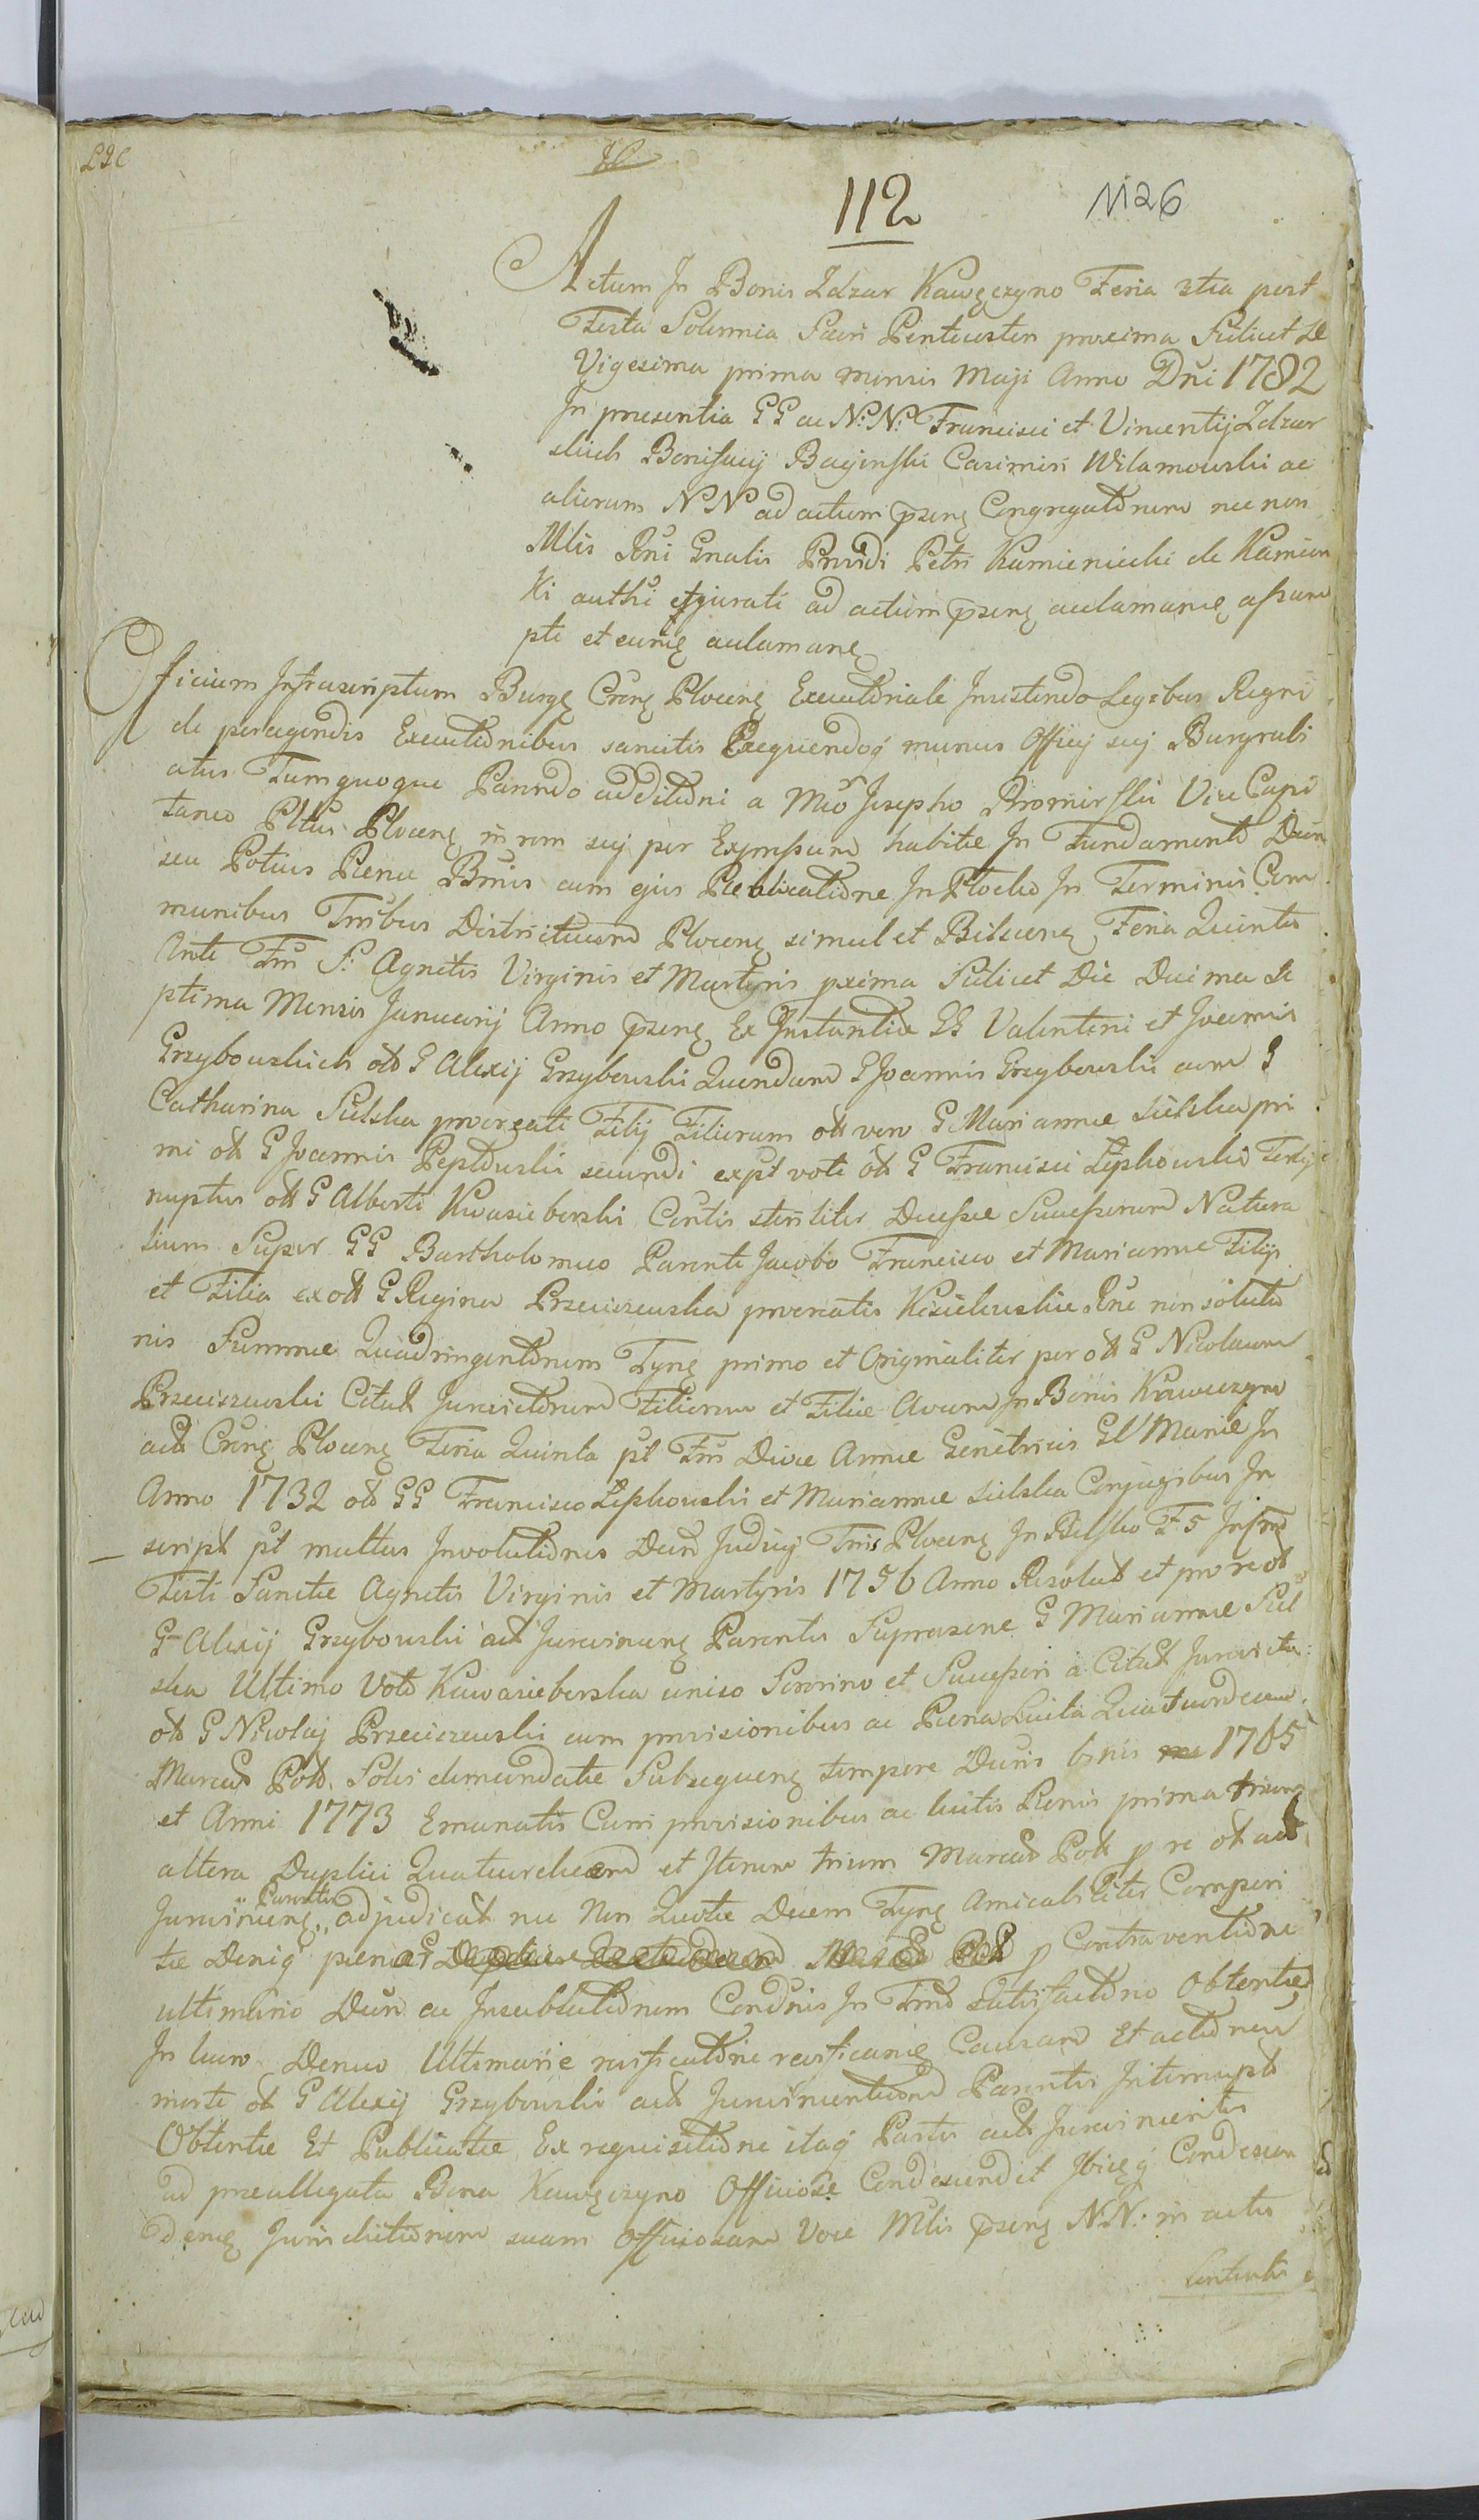 112
1126
Actum In Bonis Zdzar Kawęczyno Feria 3tia post
Festa Solennia Sacri Pentecosten proxima Scilicet Die
Vigesima prima mensis Maji Anno Dni 1782
In presentia GG ac N: N: Francisci et Vincentij Zdzar
skich Bonifacij Baginski Casimiri Wilamowski ac
aliorum NN ad actum psenę Congregatorum nec non
Mlis Rni Gnalis Providi Petri Kamieniecki de Kamion
ki authi et jurati ad actum psenę acclamanę assum
pti et eumę acclamanę
Officium Infrascriptum Burgę Crenę Plocenę Executoriale Insistendo Legibus Regni
de peragendis Executionibus sancitis Exequendoq munus Officij sui Burgrabi
atus Tum quoque Parendo additioni a Mco Josepho Bromirski Vice Capi
taneo Pltus Plocenę in rem sui per Expressum habitæ In Fundamento Decr
seu Potius Pænæ Bnnis cum ejus Publicatione In Plocko In Terminis Com
munibus Tribus Districtuum Plocenę simul et Bilscenę Feria Quinta
Ante Fm S: Agnetis Virginis et Martyris pxima Scilicet Die Decima Se
ptima Mensis Januarij Anno psenę Ex Instantia GG Valentini et Joannis
Grzybowskich ob G Alexij Grzybowski Quendam G Joannis Grzybowski cum G
Catharina Sulska procreati Filij Filiorum ob vero G Mariannæ Sulska pri
mi ob G Joannis Peplowski secundi expt voti ob G Francisci Lipkowski Tertij
nuptus ob G Alberti Kwasieborski Contis steriliter Decessæ Successorum Natura
lium Super GG Bartholomeo Parente Jacobo Francisco et Mariannæ Filijs
et Filia ex ob G Regina Przeciszewska procreatis Kisielewskie Rne non solutio
nis Summæ Quadringentorum Tynę primo et Originaliter per ob G Nicolaum
Przeciszewski Citat Jurevictorum Filiorum et Filiæ Avum In Bonis Kawęczyno
act Crenę Plocenę Feria Quinta pt Fm Divæ Annæ Genetricis Gl Mariæ In
Anno 1732 ob GG Francisco Lipkowski et Mariannæ Sulska Conjugibus In
script pt multas Involutiones Decr Judicij Tris Plocenę In Bilsko F 5 Infra
Festi Sanctæ Agnetis Virginis et Martyris 1756 Anno Resolut et pro re ob
G Alexij Grzybowski act Jurevincenę Parentis Suprasenę G Mariannæ Sul
ska Ultimo Voto Kwasieborska unico Sororino et Successori a Citat Jurevictu
ob G Nicolaj Przeciszewski cum provisionibus ac Pæna Luita Quatuordecim
Marcar Pol. Solvi demandatæ Subsequenę tempore Decris binis 1765
et Anni 1773 Emanatis Cum provisionibus ac luitis Pænis prima trium
altera Duplici Quatuordecim et Iterum trium Marcar Pol p re ob act
Jurevincenę Parentis adjudicat nec Non Quotæ Decem Tynę Amicabiliter Comperi
tæ Deniq pænæ p Contraventione
ultimario Decr ac Insubsecutionem Condnis In Fine Satisfactione Obtentæ
In lucro Denuo Ultimarie reificatione reificanię Causam Et actionem
morte ob G Alexij Grzybowski act Jurevincentium Parentis Interrupt
Obtentæ Et Publicatæ Ex requisitione itaq Partis act Jurevincentis
ad preallegata Bona Kawęczyno Officiose Condescendit Ibiq Condescen
denę Jurisdictionem suam Officiosam Voce Mlis psenę N.N: in actu
Contenti